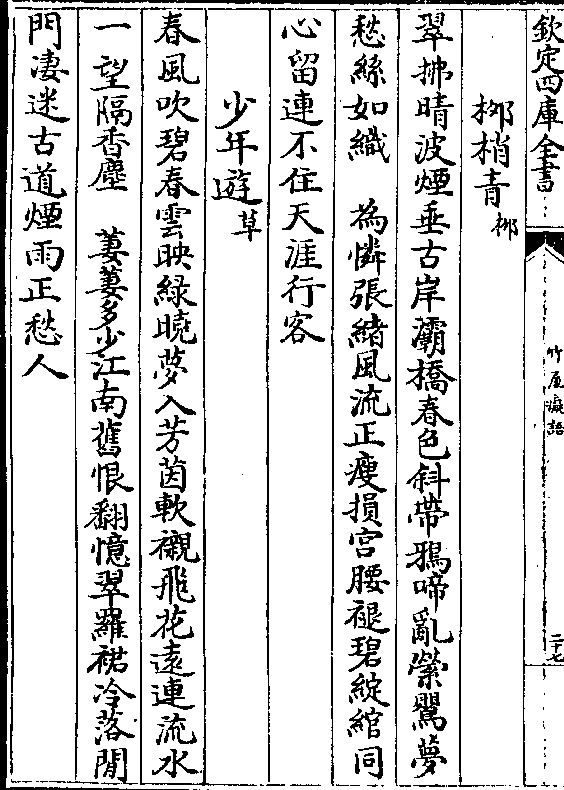 欽定四庫全書
竹屋癡語
二十七
柳梢青柳
翠拂晴波煙垂古岸灞橋春色斜帶鴉啼亂縈鶯夢
愁絲如織 為憐張緒風流正瘦損宫腰褪碧綻綰同
心留連不住天涯行客
少年遊草
春風吹碧春雲映綠曉夢入芳茵軟襯飛花遠連流水
一望隔香塵 萋萋多少江南舊恨翻憶翠羅裙冷落閒
門凄迷古道煙雨正愁人